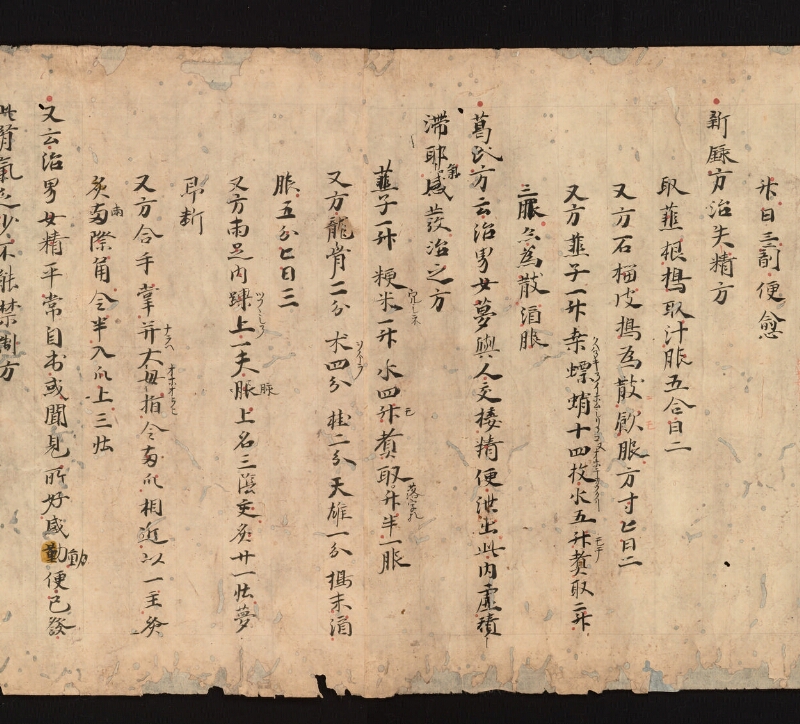 升日三剤便愈
新録方治失精方
取韮根搗取汁服五合日二
又方石榴皮搗為散飲服方寸匕日二
又方韮子一升桒螵蛸十四枚水五升煑取二升
三服亦為散酒服
葛氏方云治男女夢與人交接精便泄出此内虚積
滞耶氣感發治之方
韮子一升粳米一升水四升煑取升半一服
又方龍骨二分朮四分桂二分天雄一分搗末酒
服五分匕日三
又方兩足内踝上一夫脈上名三陰交灸廿一壮夢
即断
又方合手掌并大母指令兩爪相近以一主灸
灸兩際角令半入爪上三壮
又云治男女精平常自出或聞見所好感動便已發
此腎氣乏少不能禁制方